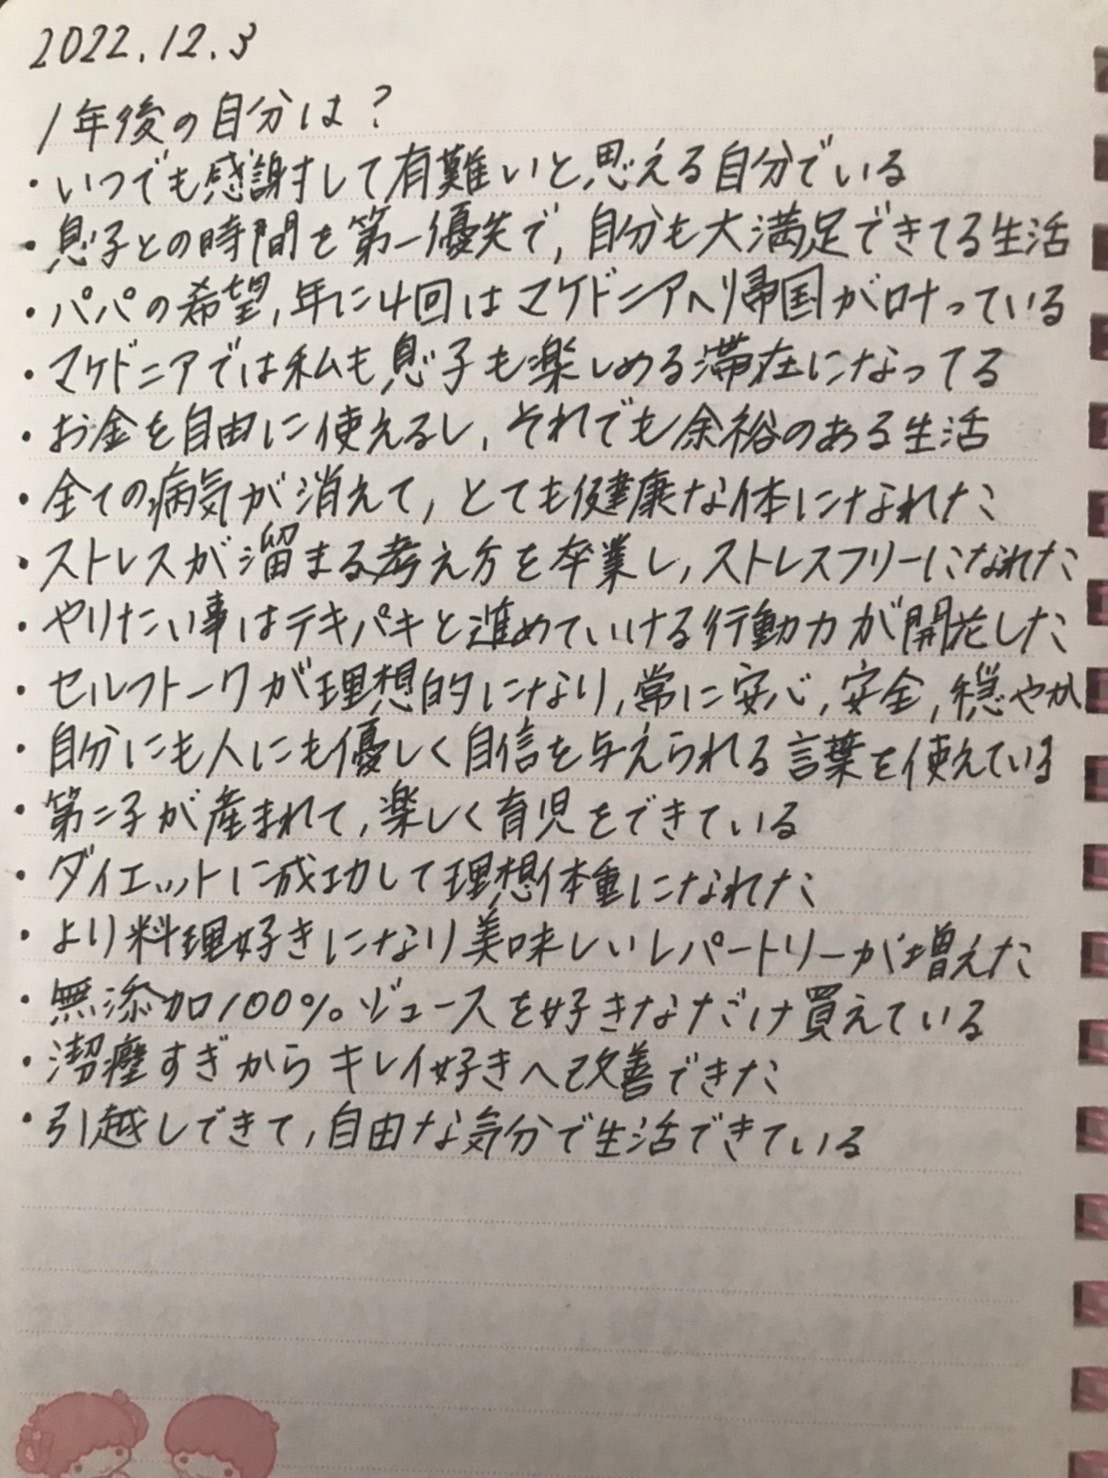 2022.12.3
1年後の自分は?
・いつでも感謝して有難いと思える自分でいる
・息子との時間を第一優先で,自分も大満足できてる生活
・パパの希望,年に4回はマケドニアへ帰国が叶っている
・マケドニアでは私も息子も楽しめる滞在になってる
・お金を自由に使えるし,それでも余裕のある生活
・全ての病気が消えて,とても健康な体になれた
・ストレスが溜まる考え方を卒業し,ストレスフリーになれた
・やりたい事はテキパキと進めていける行動力が開花した
・セルフトークが理想的になり,常に安心,安全,穏やか
・自分にも人にも優しく自信を与えられる言葉を使えている
・第二子が産まれて,楽しく育児をできている
・ダイエットに成功して理想体重になれた
・より料理好きになり美味しいレパートリーが増えた
・無添加100%ジュースを好きなだけ買えている
・潔癖すぎからキレイ好きへ改善できた
・引越しできて,自由な気分で生活できている